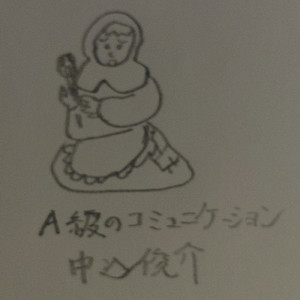 A級のコミュニケーション
中込俊介